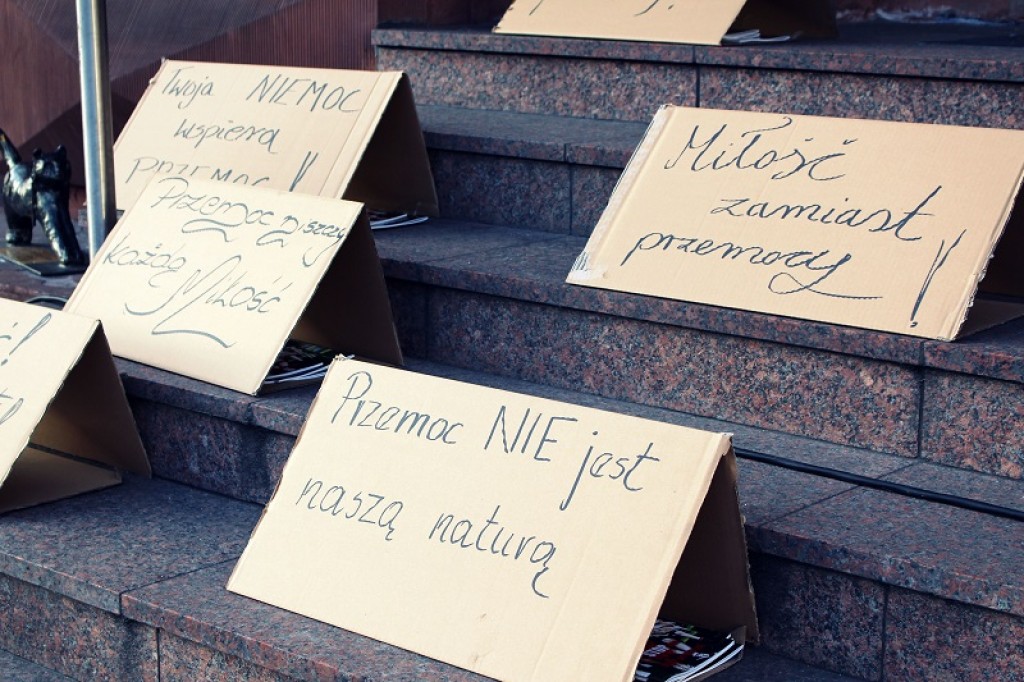 Twoja NIEMOC
wspiera
PRZEMOC!
Miłość
zamiast
przemocy!
Przemoc niszczy
każdą Miłość
Przemoc NIE jest
naszą naturą